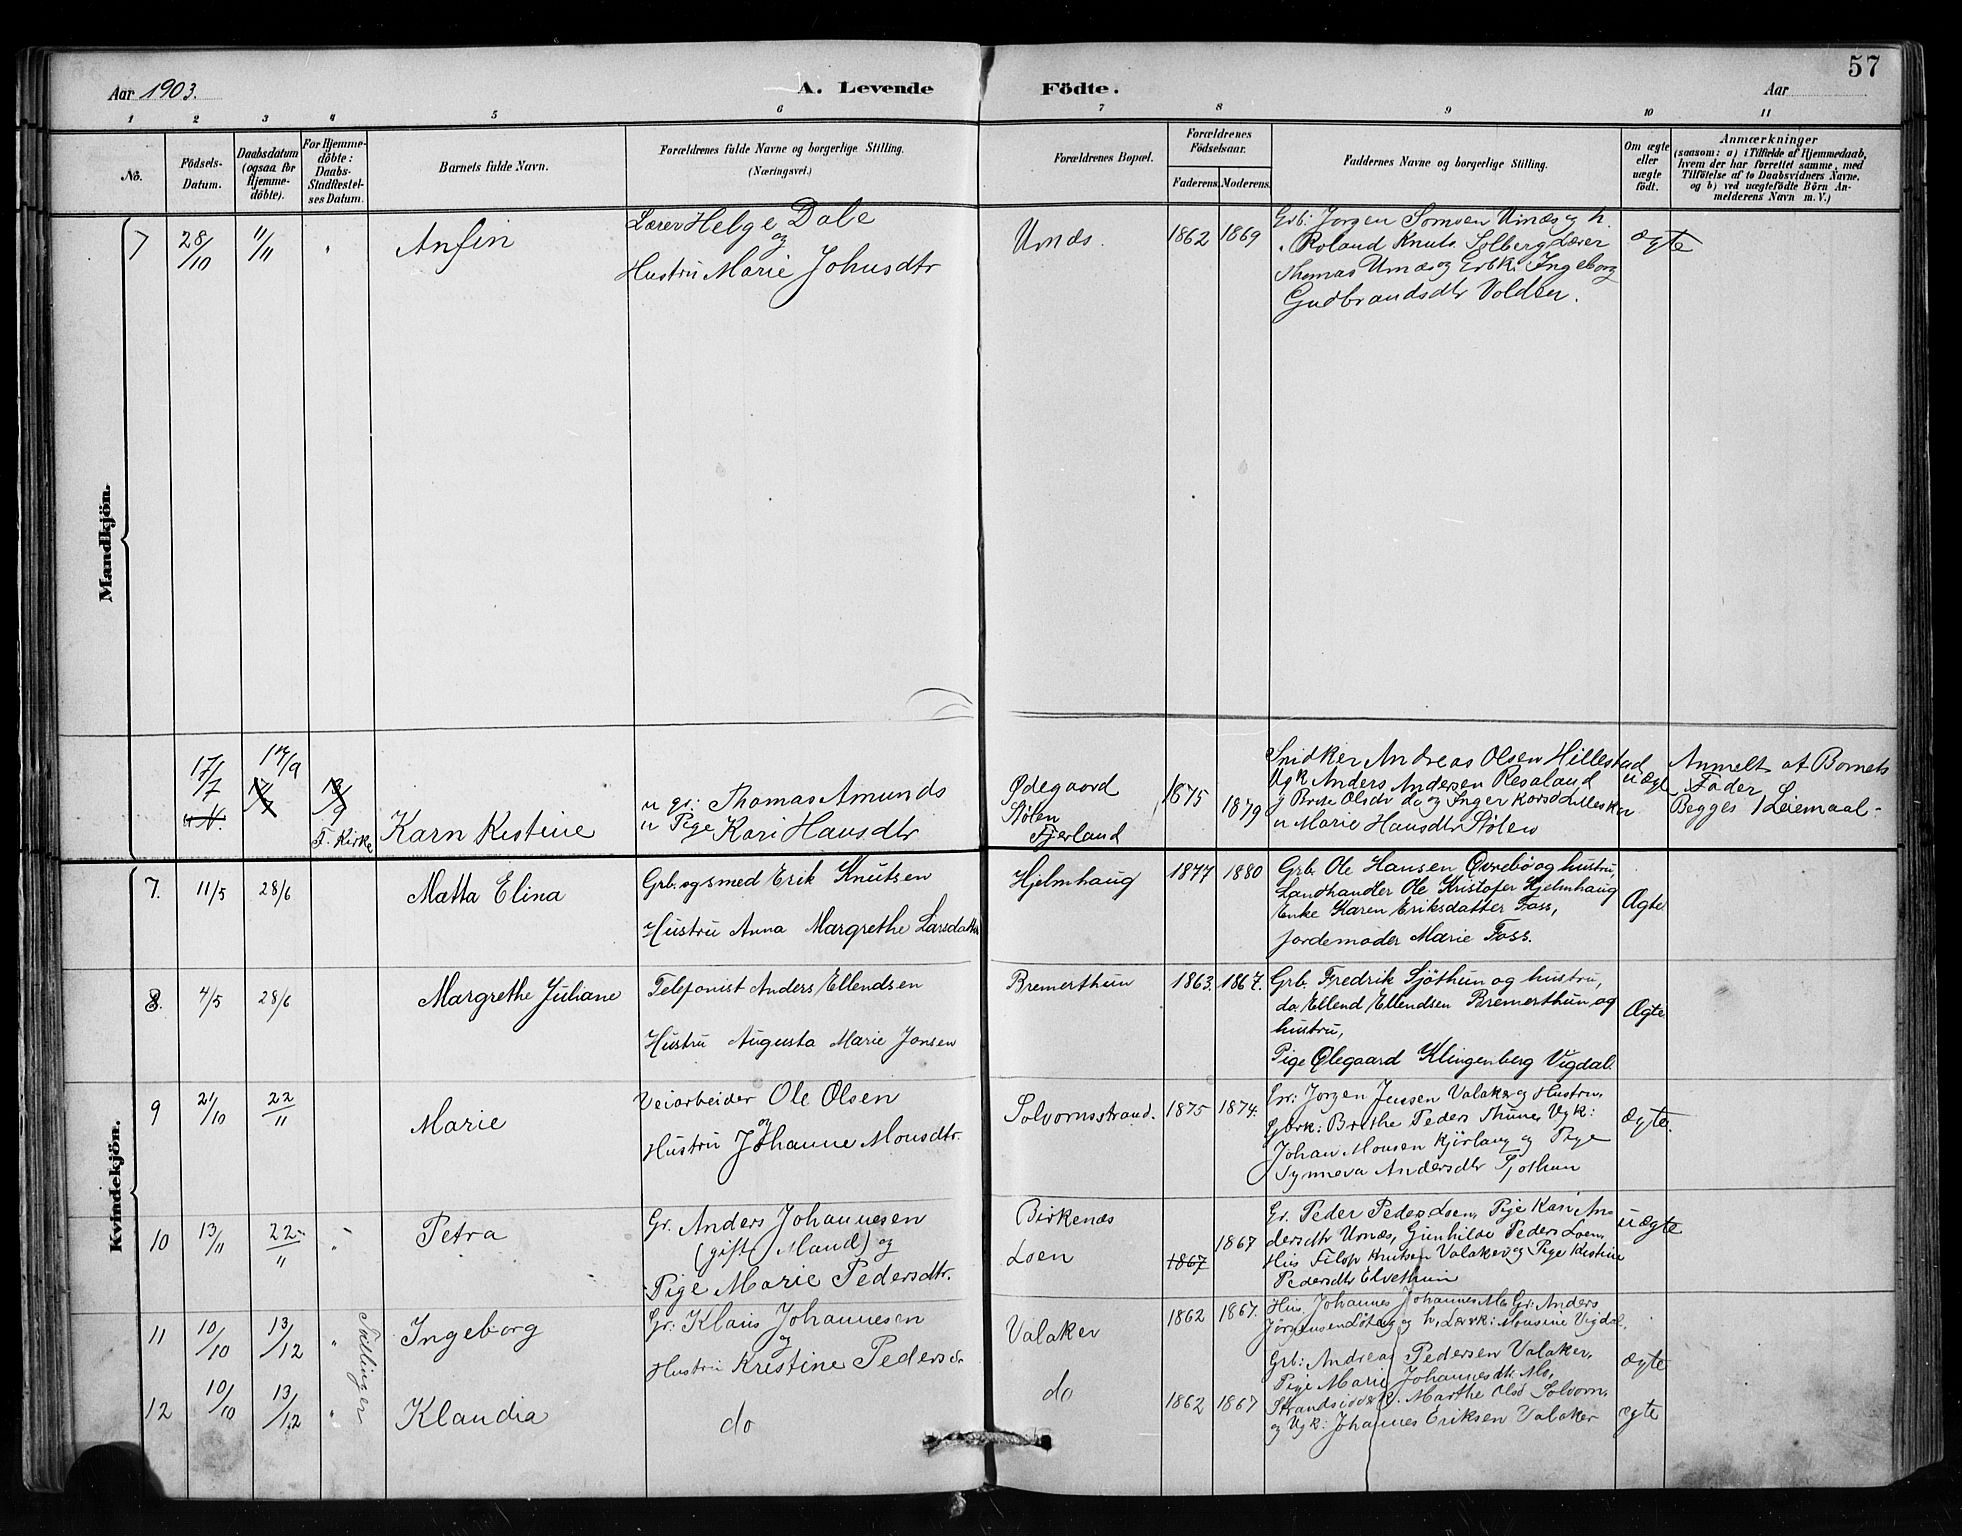 57
Aar 1903.
A. Levende
Födte.
Aar
1 2 3 4 5 6 7 8 9 10 11
No.
Födsels-
Datum.
Daabsdatum
(ogsaa for
Hjemme-
döbte).
For Hjemme-
döbte:
Daabs-
Stadfestel-
ses Datum.
Barnets fulde Navn.
Forældrenes fulde Navne og borgerlige Stilling.
(Næringsvei.)
Forældrenes Bopæl.
Forældrenes
Födselsaar.
Faderens. Moderens.
Faddernes Navne og borgerlige Stilling.
Om ægte
eller
uægte
födt.
Anmærkninger
(saasom: a) i Tilfælde af Hjemmedaab,
hvem der har forrettet samme, med
Tilföielse af to Daabsvidners Navne,
og b) ved uægtefödte Börn An-
melderens Navn m. V.)
Mandkjön.
7 28/10 11/11 " Anfin
Lærer Helge Dale
og
Hustru Marie Johnsdtr
Urnæs.
1862 1869
Grb. Jørgen Somoen Urnæs og h.
" Roland Knuts. Solberg Lærer
Thomas Urnæs og Grbki Ingeborg
Gudbrandsdtr Volden.
ægte
17/7 17/9
F. Kirke
Karn Kistine
u gs: Thomas Amunds
u Pige Kari Hansdtr
Ødegaard
Stølen
Fjerland
1875 1879
Snidker Andreas Olsen Hillestad
Ugk Anders Andersen Resaland
g Brite Olsdr do og Inger
u Marie Hansdtr Stølen
uægt
Anmelt af Barnets
Fader
Begges 1 Leiemaal -
Kvindekjön.
7. 11/5 28/6 Matta Elina
Grb. og smed Erik Knutsen
Hustru Anna Margrethe Larsdatter
Hjelmhaug
1877 1880
Grb. Ole Hansen Øvrebø og hustru,
Landhandler Ole Kristofer Hjelmhaug
Enke Karen Eriksdatter Foss,
Jordemoder Marie Foss.
Ægte
8. 4/5 28/6 Margrethe Juliane
Telefonist Anders Ellendsen
Hustru Augusta Marie Jonsen
Bremerthun
1863. 1867.
Grb. Fredrik Sjøthun og hustru,
do. Ellend Ellendsen Bremerthun og
hustru,
Pige Ølegaard Klingenberg Vigdal.
Ægte
9 21/10 22/11 Marie
Veiarbeider Ole Olsen
og
Hustru Johanne Monsdtr.
Solvornsstrand.
1875 1874.
Grr: Jørgen Jensen Valaker og Hustru,
Gbrk: Brithe Peders Thune, Ugk:
Johan Monsen Kjørlaug og Pige
Synneva Andersdtr Tjothun
ægte.
10 13/11 22/11 " Petra
Gr. Anders Johannesen
(gift Mand) og
Pige Marie Pedersdtr.
Birkenæs
Loen
1867 1867
Gr. Peder Peders Loen, Pige Kari An
dersdtr Urnæs, Gunhilde Peders Loen,
Hus Filop Knutsen Valaker og Pige Kistine
Pedersdtr Elvethun
uægte
11 10/10 13/12 " Ingeborg
Tvillinger
Gr: Klaus Johannesen
og
Hustru Kristine Pedersd.
Valaker
1862 1867.
Hus. Johannes Johannes Mo Gr. Anders
Jørgensen Løteg og h, Lærk: Monsine Vigdal.
Grb: Andreas Pedersen Valaker,
ægte
12 10/10 13/12 " Klandia
do
do
1862 1867
Pige Marie Johannesdtr. Mo,
Strandsidderk. Marthe Olsd Solvorn.
og Ugk: Johannes Eriksen Valaker
ægte